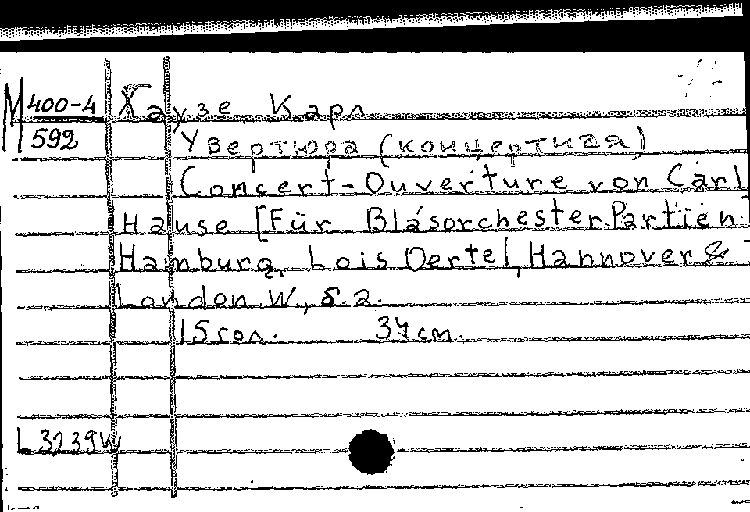 М 400-4
592
Хаузе, Карл
Увертюра (концертная)
Concert-Ouverture von Carl
Hause [Für Blasorchester. Partien]
Hamburg, Lois Oertel, Hannover &
London W., S.a.
15 гол. 34 cm.
L 3239W